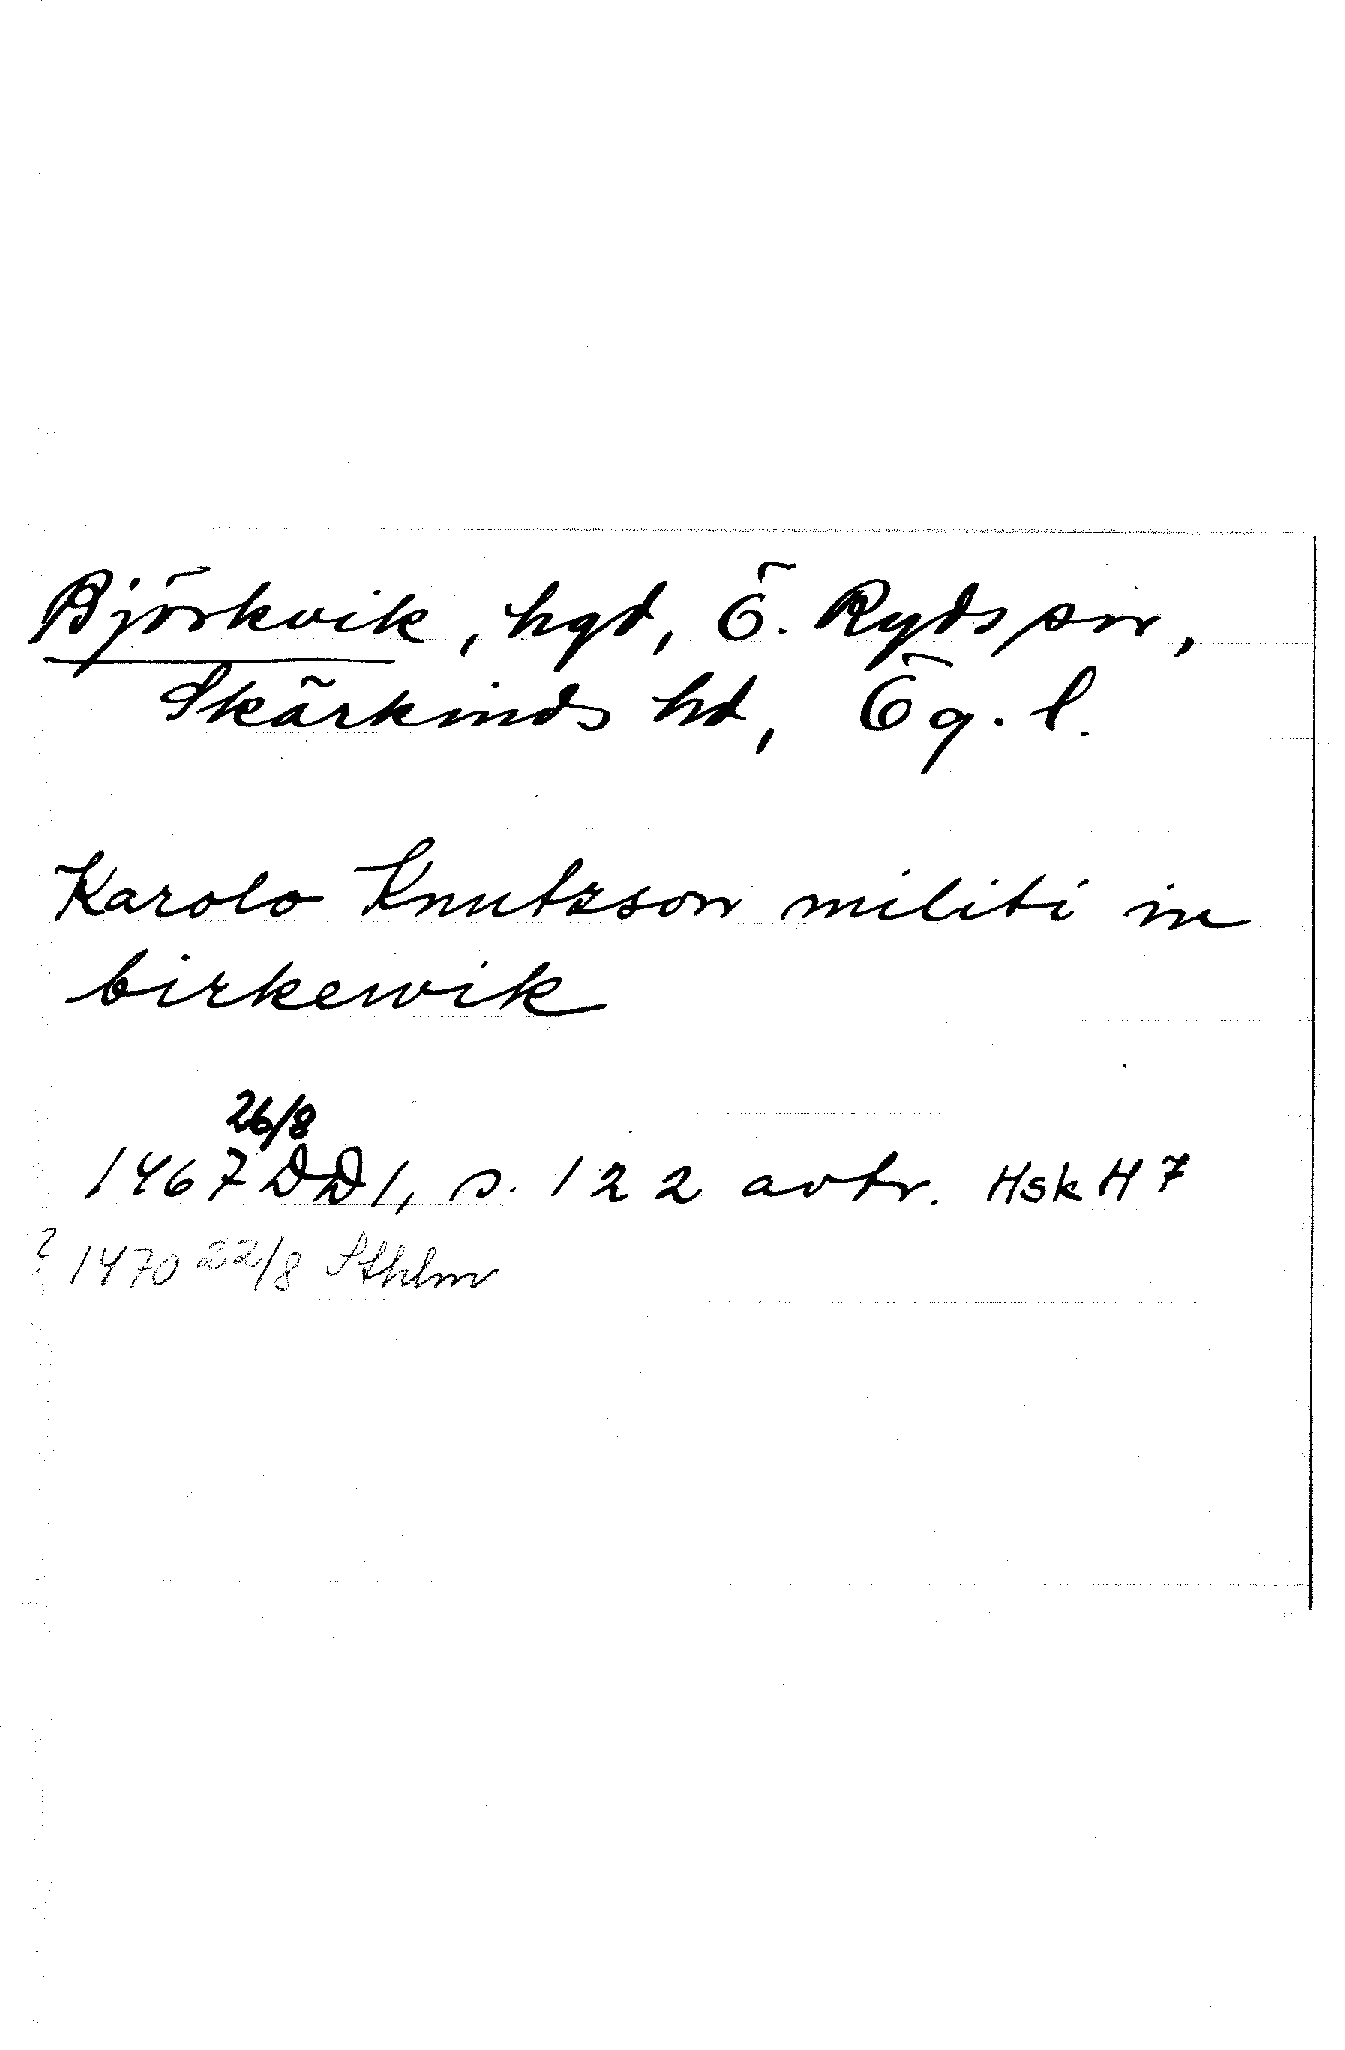 Björkvik, hgd, Ö. Ryds sn,
Skärkinds hd, Ög. l.
Karolo Knutzson militi in
birkewik
1467 26/8 DD 1, s. 122 avtr. Hsk H 7
? 1470 22/8 Sthlm